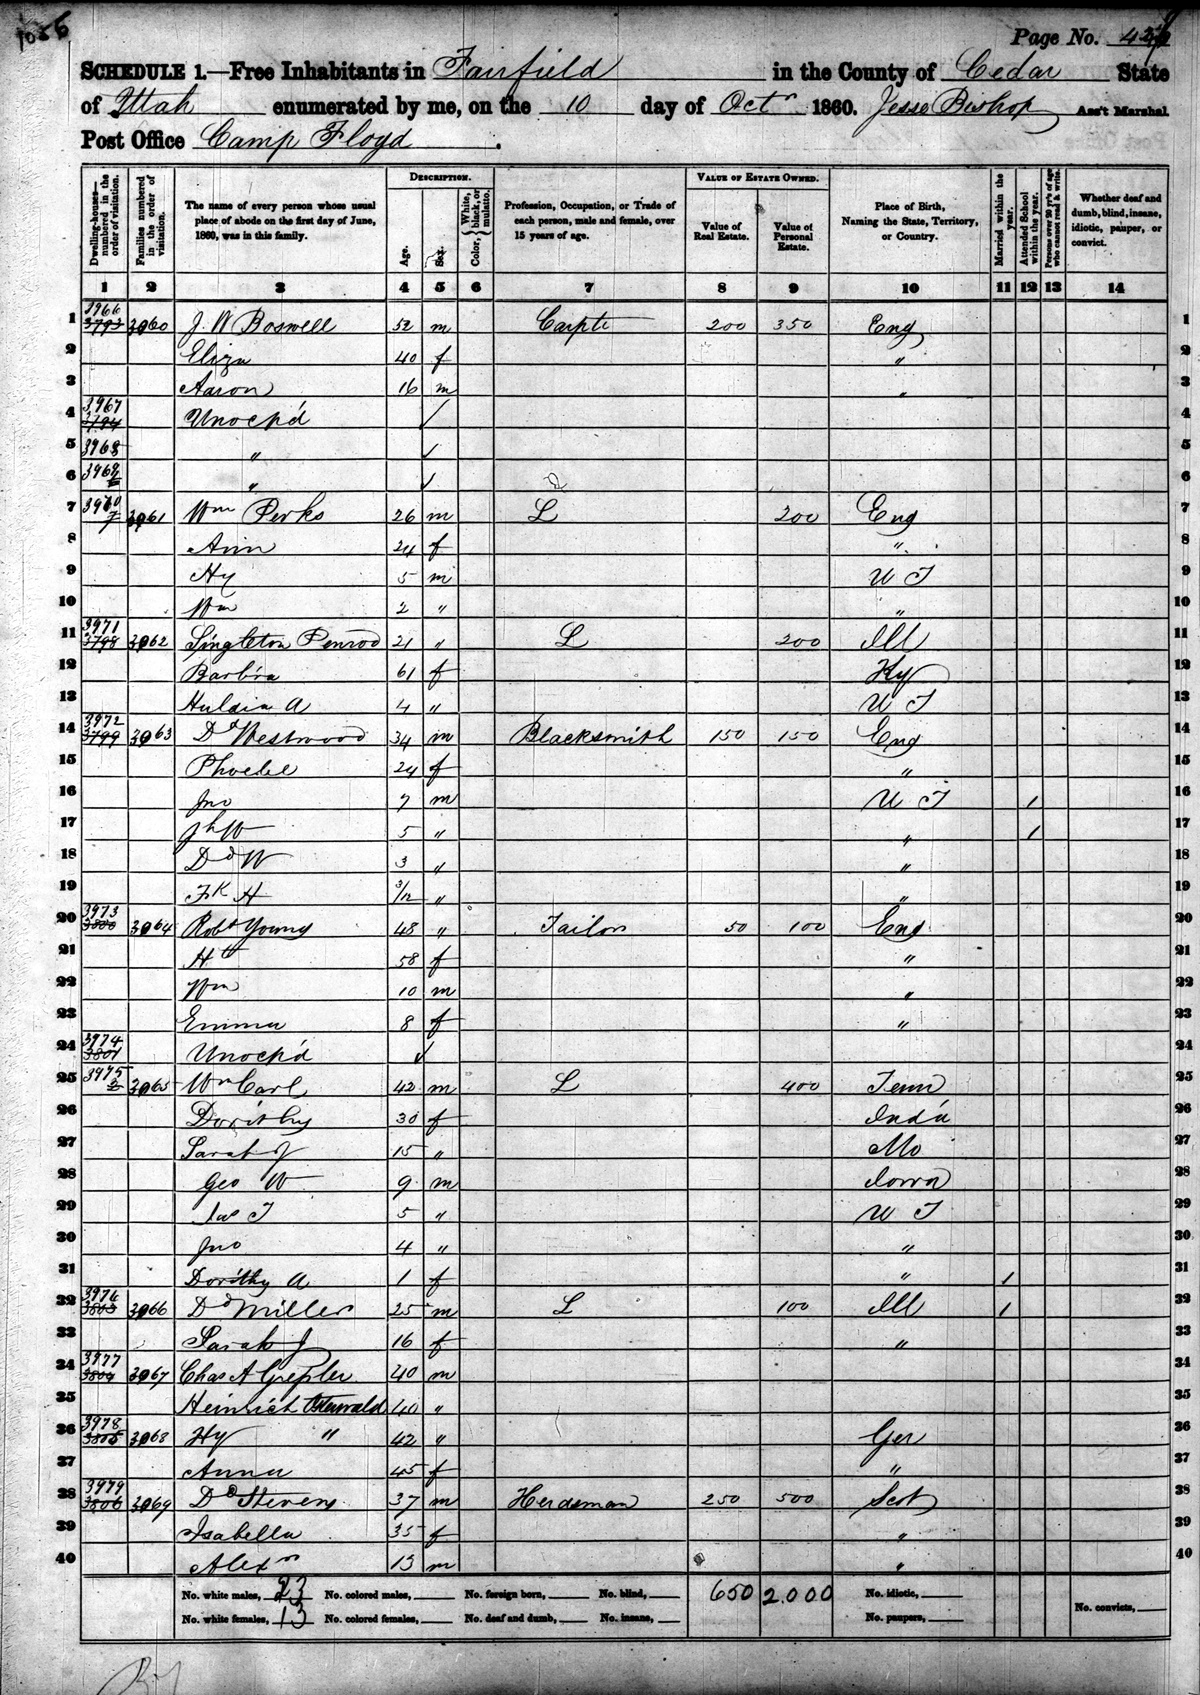 1056
Page No. 429
SCHEDULE 1.—Free Inhabitants in Fairfield in the County of Cedar State
of Utah enumerated by me, on the 10 day of Octr 1860. Jesse Bishop Ass't Marshal.
Post Office Camp Floyd.
Dwelling-houses—numbered in the order of visitation.
Families numbered in the order of visitation.
The name of every person whose usual place of abode on the first day of June, 1860, was in this family.
DESCRIPTION.
Age.
Sex.
Color, { White, black, or mulatto.
Profession, Occupation, or Trade of each person, male and female, over 15 years of age.
VALUE OF ESTATE OWNED.
Value of Real Estate.
Value of Personal Estate.
Place of Birth, Naming the State, Territory, or Country.
Married within the year.
Attended School within the year.
Persons over 20 y'rs of age who cannot read & write.
Whether deaf and dumb, blind, insane, idiotic, pauper, or convict.
1 2 3 4 5 6 7 8 9 10 11 12 13 14
1 3966 3793 3060 J. W Boswell 52 m Carptr 200 350 Eng 1
2 Eliza 40 f " 2
3 Aaron 16 m " 3
4 3967 3794 Unocp'd 4
5 3968 " 5
6 3969 " 6
7 3970 3061 Wm Perks 26 m L 200 Eng 7
8 Ann 24 f " 8
9 Hy 5 m U T 9
10 Wm 2 " " 10
11 3971 3798 3062 Singleton Penrod 21 " L 200 Ill 11
12 Barbra 61 f Ky 12
13 Huldia A 4 " U T 13
14 3972 3799 3063 Dd Westwood 34 m Blacksmith 150 150 Eng 14
15 Phoebe 24 f " 15
16 Jno 7 m U T 1 16
17 Jh W 5 " " 1 17
18 Dd W 3 " " 18
19 Fk H 3/12 " " 19
20 3973 3800 3064 Robt Young 48 " Tailor 50 100 Eng 20
21 Ht 58 f " 21
22 Wm 10 m " 22
23 Emma 8 f " 23
24 3974 3801 Unocp'd 24
25 3975 2 3065 Wm Carl 42 m L 400 Tenn 25
26 Dorithy 30 f Inda 26
27 Sarah J 15 " Mo 27
28 Geo W 9 m Iowa 28
29 Jas T 5 " U T 29
30 Jno 4 " " 30
31 Dorithy A 1 f " 1 31
32 3976 3803 3066 Dd Miller 25 m L 100 Ill 1 32
33 Sarah J 16 f " 33
34 3977 3804 3067 Chas A Grepler 40 m 34
35 Heinrich 40 " 35
36 3978 3805 3068 Hy " 42 " Ger 36
37 Anna 45 f " 37
38 3979 3806 3069 Dd Stevens 37 m Herdsman 250 500 Scot 38
39 Isabella 35 f " 39
40 Alexr 13 m " 40
No. white males, 23 No. colored males, No. foreign born, No. blind, 650 2.000 No. idiotic,
No. white females, 13 No. colored females, No. deaf and dumb, No. insane, No. paupers, No. convicts,